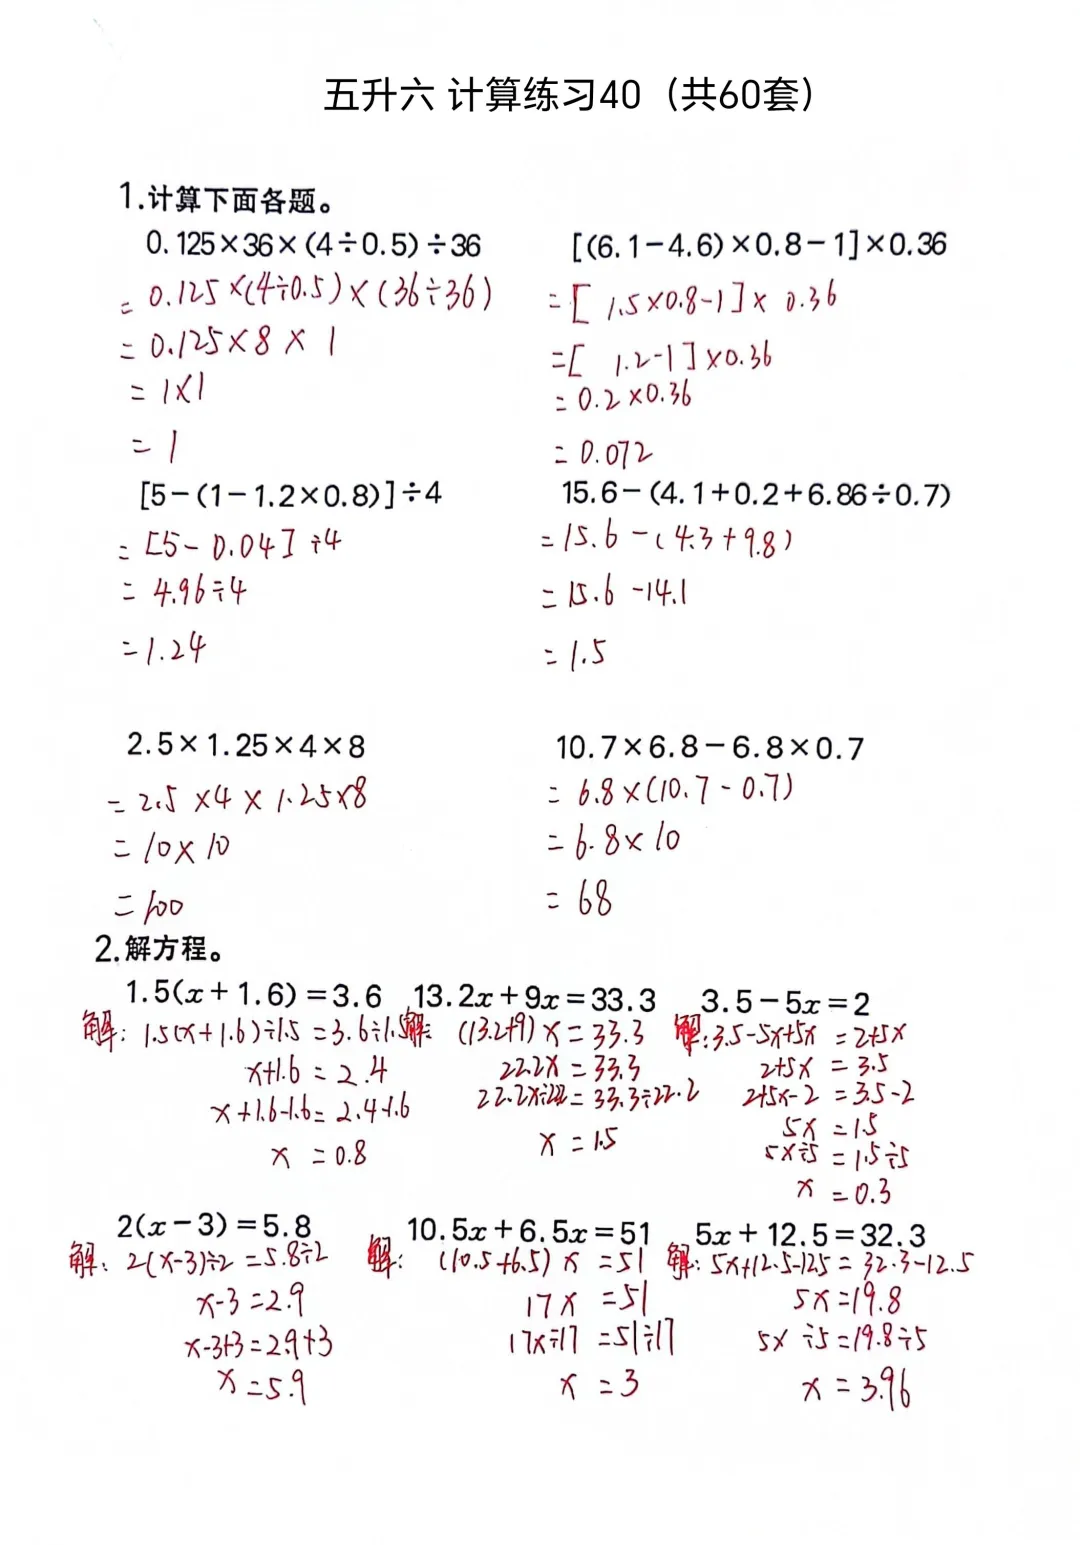 五升六 计算练习40（共60套）
1.计算下面各题。
0.125×36×(4÷0.5)÷36
=0.125×(4÷0.5)×(36÷36)
=0.125×8×1
=1×1
=1
[(6.1-4.6)×0.8-1]×0.36
=[1.5×0.8-1]×0.36
=[1.2-1]×0.36
=0.2×0.36
=0.072
[5-(1-1.2×0.8)]÷4
=[5-0.04]÷4
=4.96÷4
=1.24
15.6-(4.1+0.2+6.86÷0.7)
=15.6-(4.3+9.8)
=15.6-14.1
=1.5
2.5×1.25×4×8
=2.5×4×1.25×8
=10×10
=100
10.7×6.8-6.8×0.7
=6.8×(10.7-0.7)
=6.8×10
=68
2.解方程。
1.5(x+1.6)=3.6
解: 1.5(x+1.6)÷1.5=3.6÷1.5
x+1.6=2.4
x+1.6-1.6=2.4-1.6
x=0.8
13.2x+9x=33.3
解: (13.2+9)x=33.3
22.2x=33.3
22.2x÷22.2=33.3÷22.2
x=1.5
3.5-5x=2
解:3.5-5x+5x=2+5x
2+5x=3.5
2+5x-2=3.5-2
5x=1.5
5x÷5=1.5÷5
x=0.3
2(x-3)=5.8
解: 2(x-3)÷2=5.8÷2
x-3=2.9
x-3+3=2.9+3
x=5.9
10.5x+6.5x=51
解: (10.5+6.5)x=51
17x=51
17x÷17=51÷17
x=3
5x+12.5=32.3
解: 5x+12.5-12.5=32.3-12.5
5x=19.8
5x÷5=19.8÷5
x=3.96